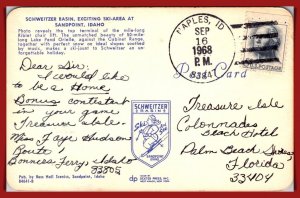 SCHWEITZER BASIN, EXCITING SKI-AREA AT
SANDPOINT, IDAHO
Photo reveals the top terminal of the mile-long
Kristel chair lift. The unmatched beauty of 50-mile
long Lake Pend Oreille, against the Cabinet Range,
together with perfect snow on ideal slopes exotted
by music, makes a ski-jount to Schweitzer an un-
forgettable holiday.
Dear Sir:
I would like
to be a Home
Bonus contestant
in your game
Treasure Isle
Miss Faye Hudson
Route 1
Bonners Ferry, Idaho
83805
Pub. by Ross Hall Scenics, Sandpoint, Idaho
NAPLES, ID
SEP
16
1968
P.M.
83847
Post Card
U.S. POSTAGE
SCHWEITZER
BASIN
SANDPOINT
IDAHO
dp
Treasure Isle
Colonnades
Beach Hotel
Palm Beach Shores,
Florida
33404